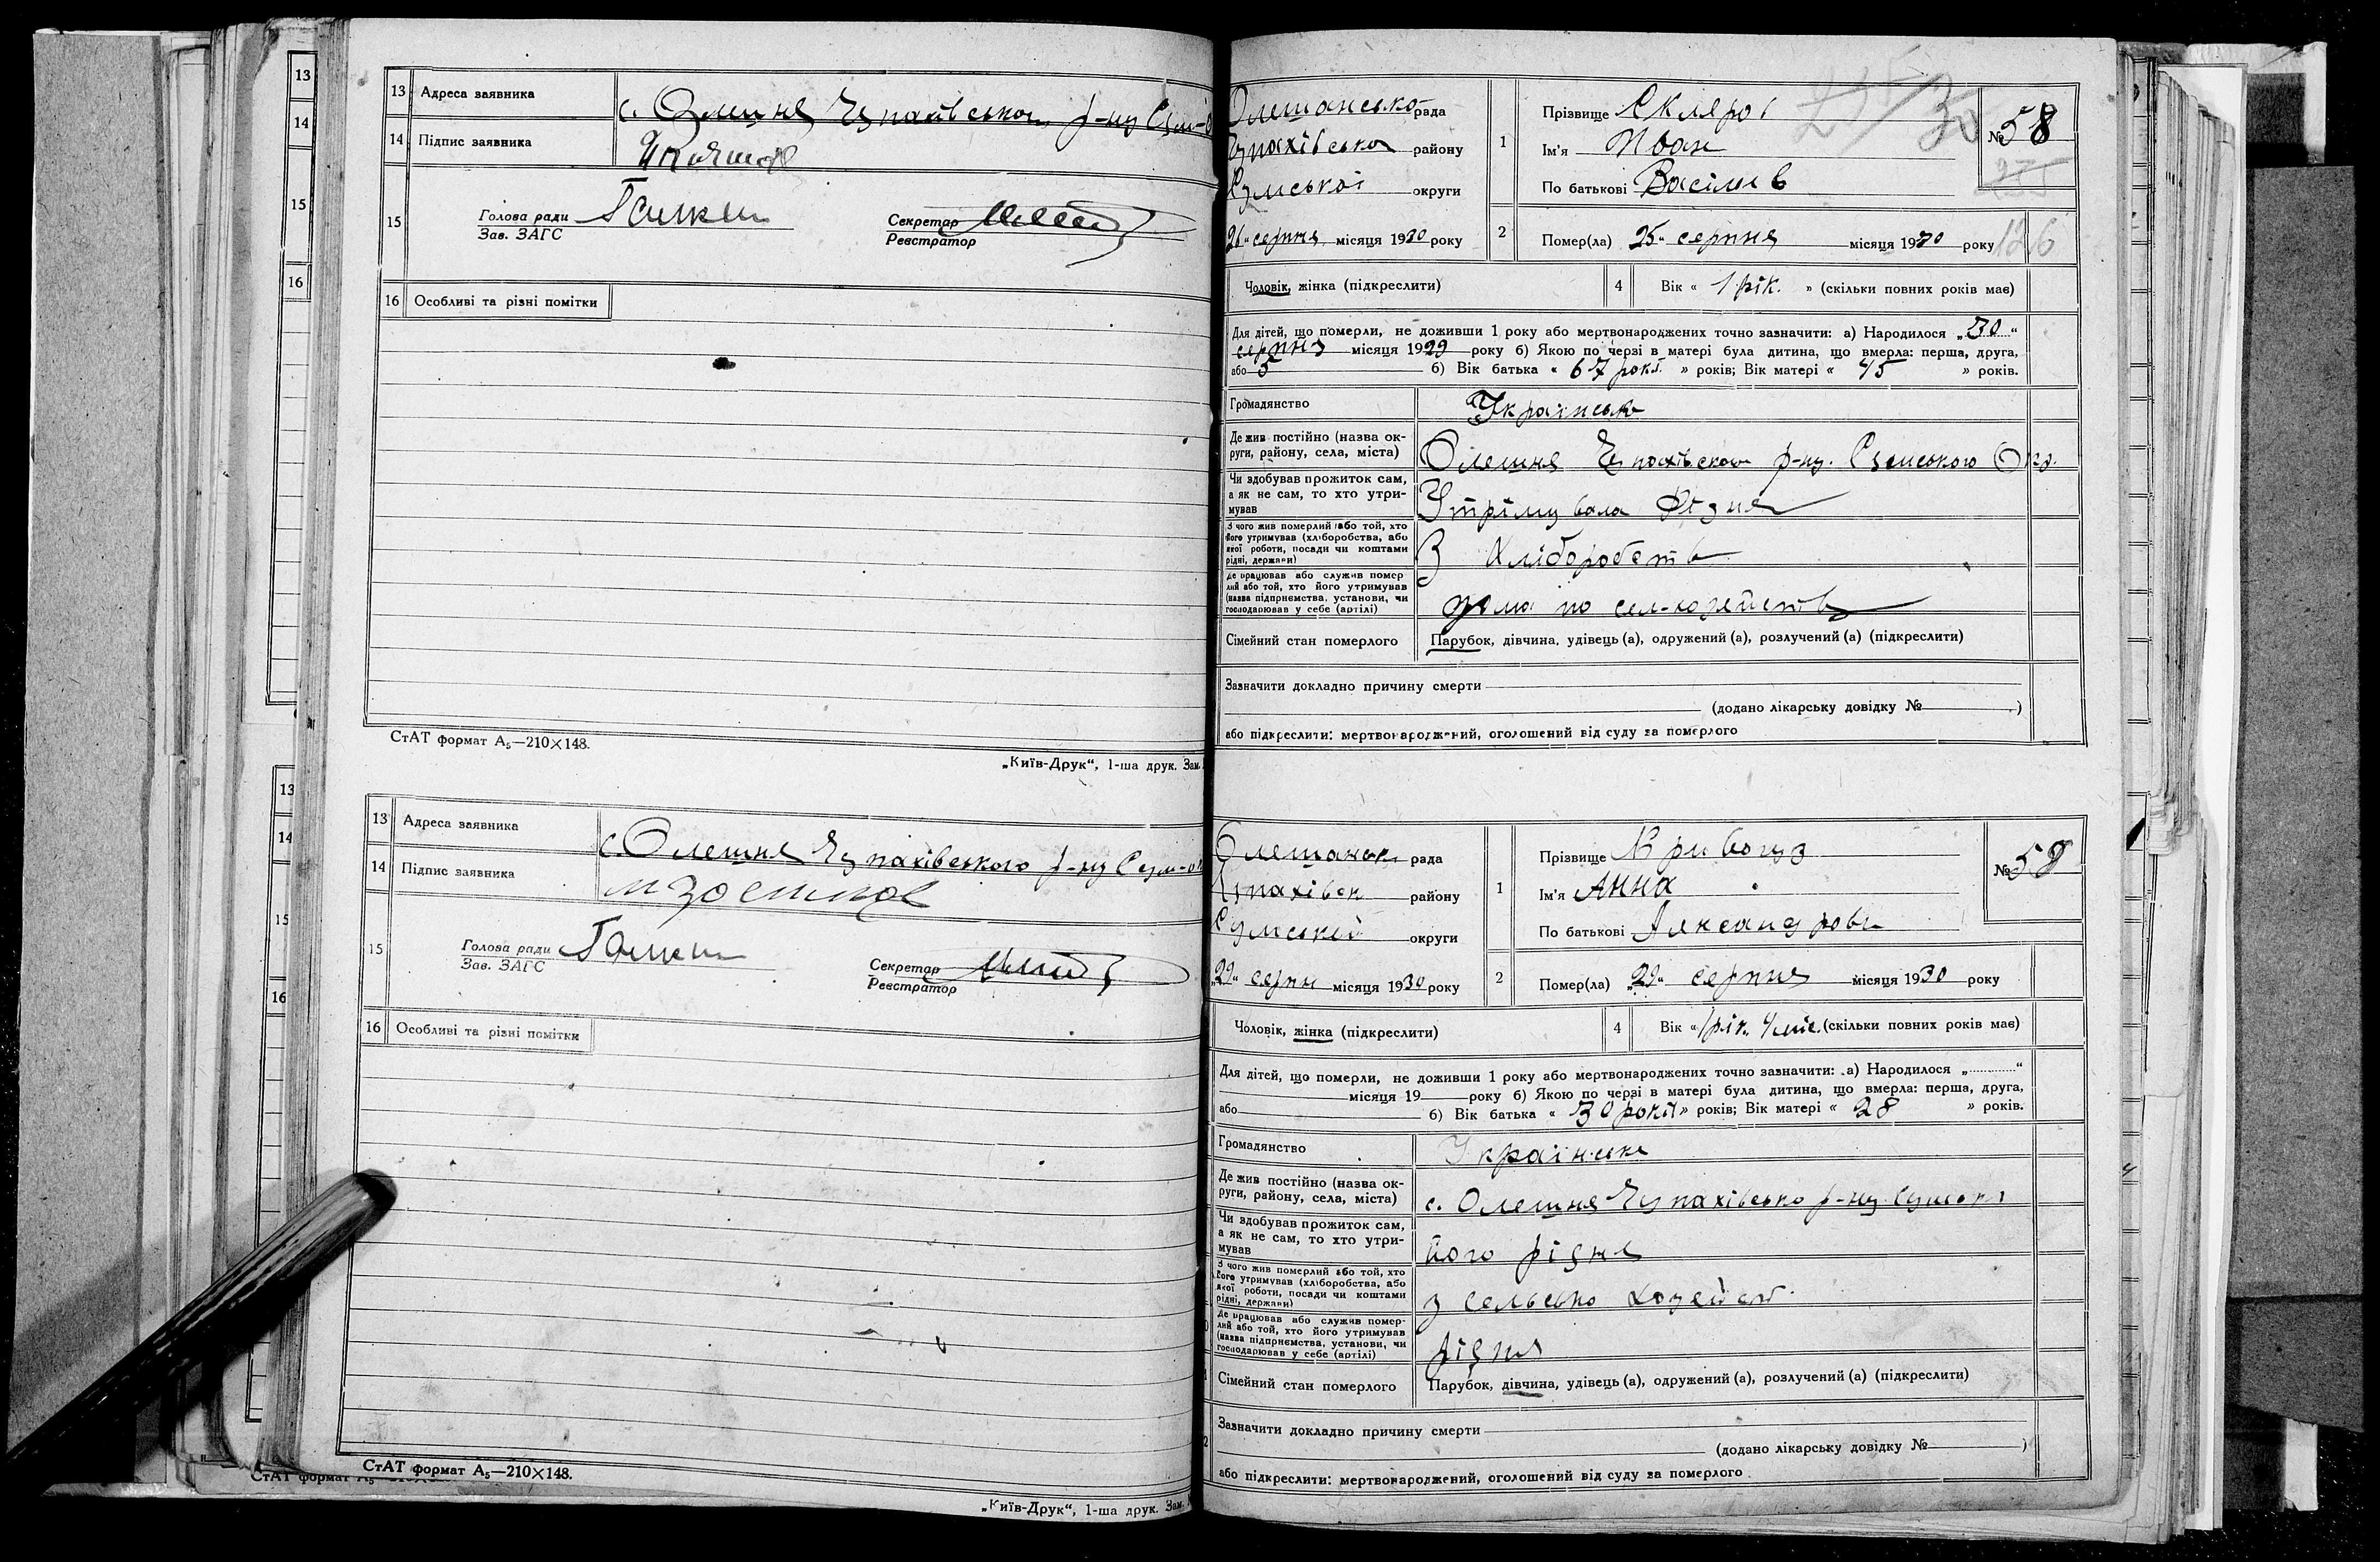 13 Адреса заявника с. Олешня Чупахівського р-ну Сум-о
14 Підпис заявника
15 Голова ради Галкин Секретар
Зав. ЗАГС Реєстратор
16 Особливі та різні помітки
СтАТ формат А₅—210×148.
„Київ-Друк“, 1-ша друк. Зам.
13 Адреса заявника с. Олешня Чупахівського р-ну Сум-о
14 Підпис заявника
15 Голова ради Галкин Секретар
Зав. ЗАГС Реєстратор
16 Особливі та різні помітки
СтАТ формат А₅—210×148.
„Київ-Друк“, 1-ша друк. Зам.
Олешансько рада
Чупахівсько району
Сумської округи
„26“ серпня місяця 1930 року
1 Прізвище Скляров
Ім'я Иван
По батькові Василів
№ 58
2 Помер(ла) „25“ серпня місяця 1930 року 126
Чоловік, жінка (підкреслити) 4 Вік « 1 рік. » (скільки повних років має)
Для дітей, що померли, не доживши 1 року або мертвонароджених точно зазначити: а) Народилося „30“
серпня місяця 1929 року б) Якою по черзі в матері була дитина, що вмерла: перша, друга,
або 5 б) Вік батька « 67 рокі » років; Вік матері « 45 » років.
Громадянство Українсько
Де жив постійно (назва округи, району, села, міста) Олешня Чупахівського р-ну. Сумського Окр.
Чи здобував прожиток сам, а як не сам, то хто утримував Утрімувала Рідня
З чого жив померлий або той, хто його утримував (хліборобства, або якої роботи, посади чи коштами рідні, держави) З Хліборобств
Де працював або служив померлий або той, хто його утримував (назва підприємства, установи, чи господарював у себе (артілі) дома по сел-хозейств
Сімейний стан померлого Парубок, дівчина, удівець (а), одружений (а), розлучений (а) (підкреслити)
Зазначити докладно причину смерти
(додано лікарську довідку № )
або підкреслити: мертвонароджений, оголошений від суду за померлого
Олешанськ рада
Чупахівск району
Сумській округи
„29“ серпн місяця 1930 року
1 Прізвище Кривогуз
Ім'я Анна
По батькові Александров
№ 59
2 Помер(ла) „29“ серпня місяця 1930 року
Чоловік, жінка (підкреслити) 4 Вік « 1 рік. 4 міс. (скільки повних років має)
Для дітей, що померли, не доживши 1 року або мертвонароджених точно зазначити: а) Народилося „ “
місяця 19 року б) Якою по черзі в матері була дитина, що вмерла: перша, друга,
або б) Вік батька « 30 років » років; Вік матері « 28 » років.
Громадянство Українське
Де жив постійно (назва округи, району, села, міста) с. Олешня Чупахівсько р-ну. Сумськ
Чи здобував прожиток сам, а як не сам, то хто утримував його рідня
З чого жив померлий або той, хто його утримував (хліборобства, або якої роботи, посади чи коштами рідні, держави) з сельсько хозейст.
Де працював або служив померлий або той, хто його утримував (назва підприємства, установи, чи господарював у себе (артілі) рідня
Сімейний стан померлого Парубок, дівчина, удівець (а), одружений (а), розлучений (а) (підкреслити)
Зазначити докладно причину смерти
(додано лікарську довідку № )
або підкреслити: мертвонароджений, оголошений від суду за померлого